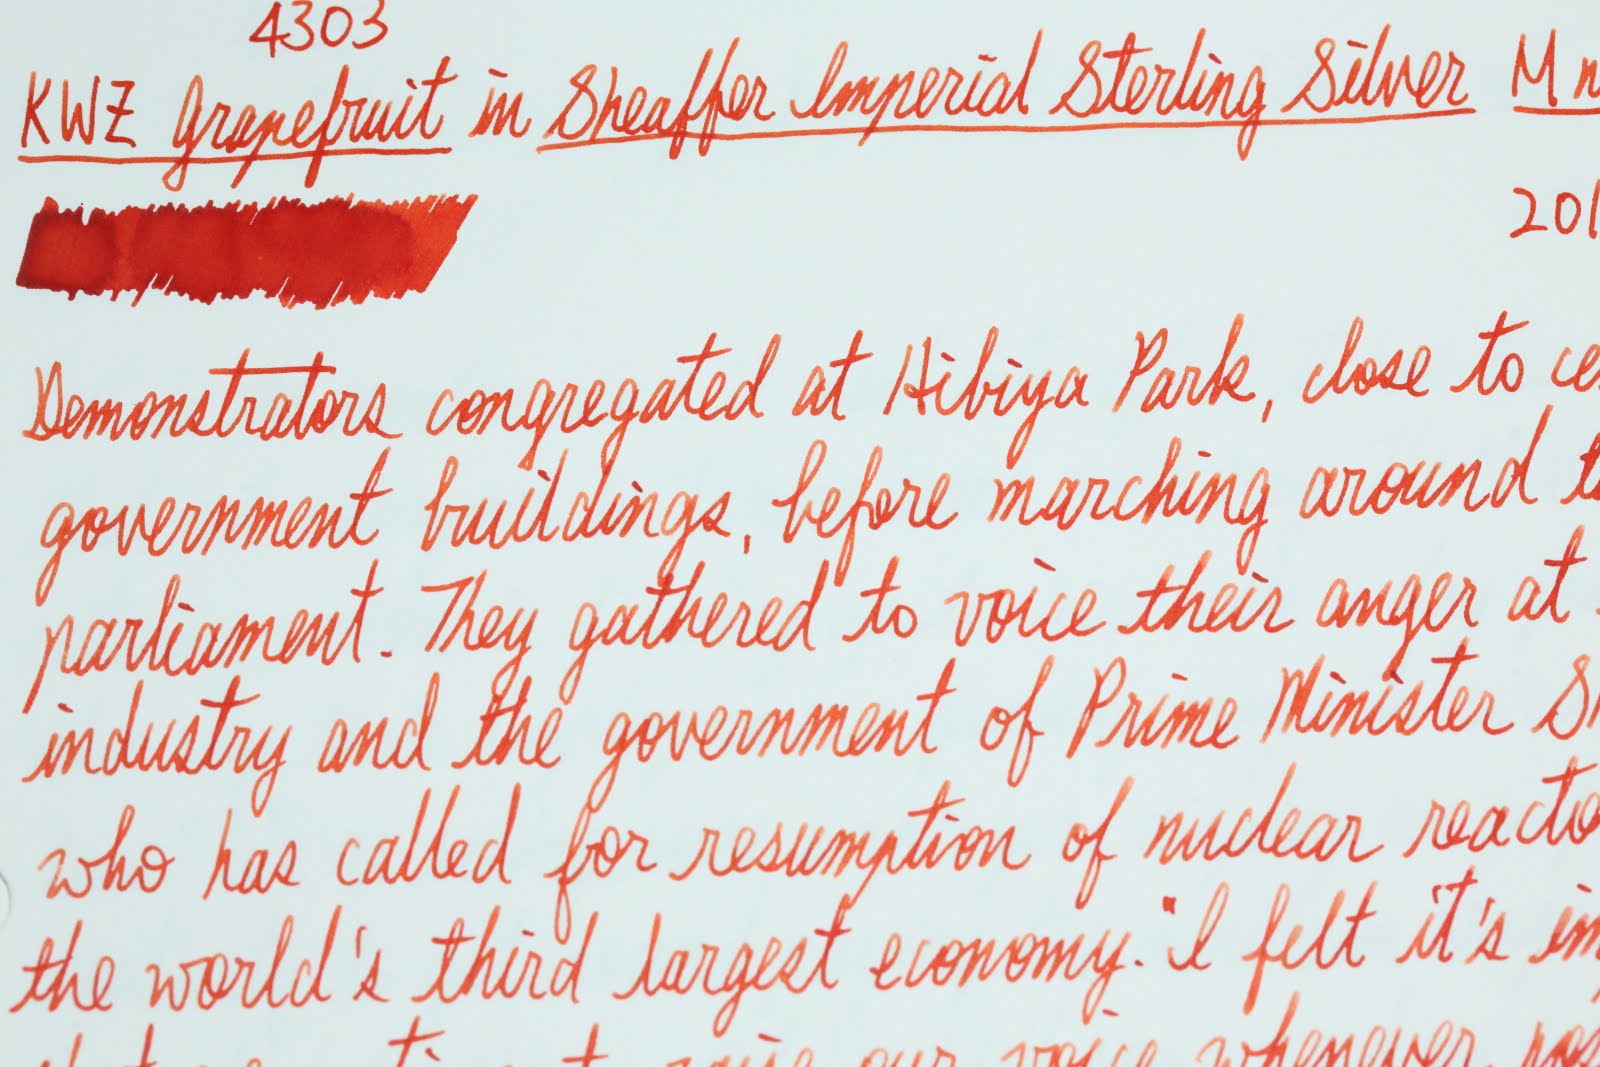 4303
KWZ Grapefruit in Sheaffer Imperial Sterling Silver M
201
Demonstrators congregated at Hibiya Park, close to
government buildings, before marching around
parliament. They gathered to voice their anger at
industry and the government of Prime Minister
who has called for resumption of nuclear
the world's third largest economy. "I felt it's
raise our voice whenever